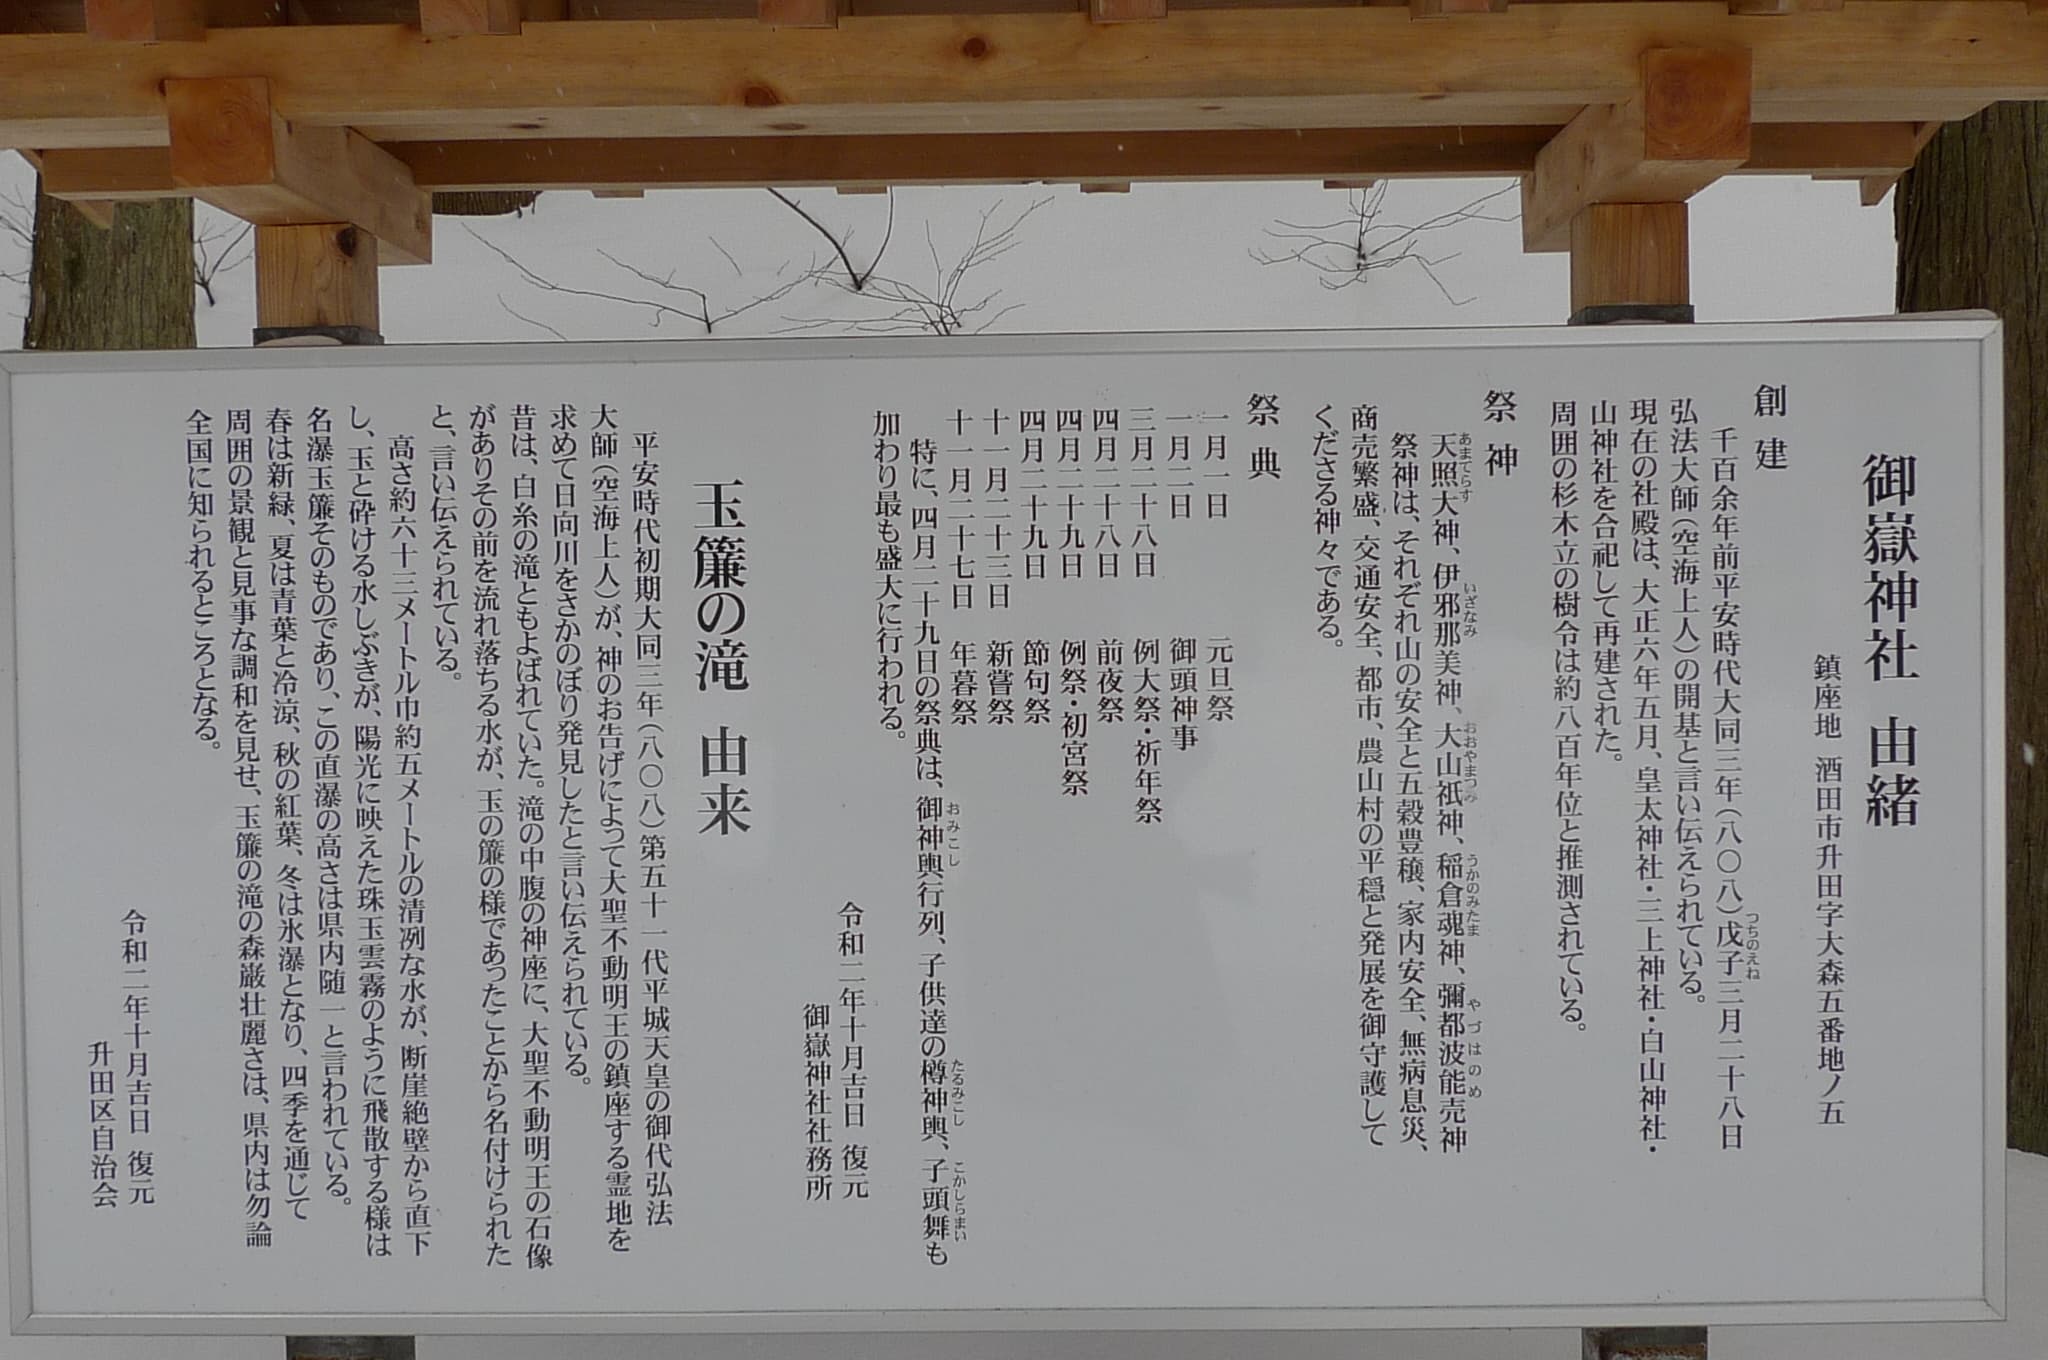 御嶽神社 由緒
鎮座地 酒田市升田字大森五番地ノ五
創建
千百余年前平安時代大同三年(八〇八)戊子三月二十八日
つちのえね
弘法大師(空海上人)の開基と言い伝えられている。
現在の社殿は、大正六年五月、皇太神社・三上神社・白山神社・
山神社を合祀して再建された。
周囲の杉木立の樹令は約八百年位と推測されている。
祭神
天照大神、伊邪那美神、大山祇神、稲倉魂神、彌都波能売神
あまてらす いざなみ おおやまつみ うかのみたま やづはのめ
祭神は、それぞれ山の安全と五穀豊穣、家内安全、無病息災、
商売繁盛、交通安全、都市、農山村の平穏と発展を御守護して
くださる神々である。
祭典
一月一日 元旦祭
一月二日 御頭神事
三月二十八日 例大祭・祈年祭
四月二十八日 前夜祭
四月二十九日 例祭・初宮祭
四月二十九日 節句祭
十一月二十三日 新嘗祭
十一月二十七日 年暮祭
特に、四月二十九日の祭典は、御神輿行列、子供達の樽神輿、子頭舞も
おみこし たるみこし こかしらまい
加わり最も盛大に行われる。
令和二年十月吉日 復元
御嶽神社社務所
玉簾の滝 由来
平安時代初期大同三年(八〇八)第五十一代平城天皇の御代弘法
大師(空海上人)が、神のお告げによって大聖不動明王の鎮座する霊地を
求めて日向川をさかのぼり発見したと言い伝えられている。
昔は、白糸の滝ともよばれていた。滝の中腹の神座に、大聖不動明王の石像
がありその前を流れ落ちる水が、玉の簾の様であったことから名付けられた
と、言い伝えられている。
高さ約六十三メートル巾約五メートルの清冽な水が、断崖絶壁から直下
し、玉と砕ける水しぶきが、陽光に映えた珠玉雲霧のように飛散する様は
名瀑玉簾そのものであり、この直瀑の高さは県内随一と言われている。
春は新緑、夏は青葉と冷涼、秋の紅葉、冬は氷瀑となり、四季を通じて
周囲の景観と見事な調和を見せ、玉簾の滝の森厳壮麗さは、県内は勿論
全国に知られるところとなる。
令和二年十月吉日 復元
升田区自治会